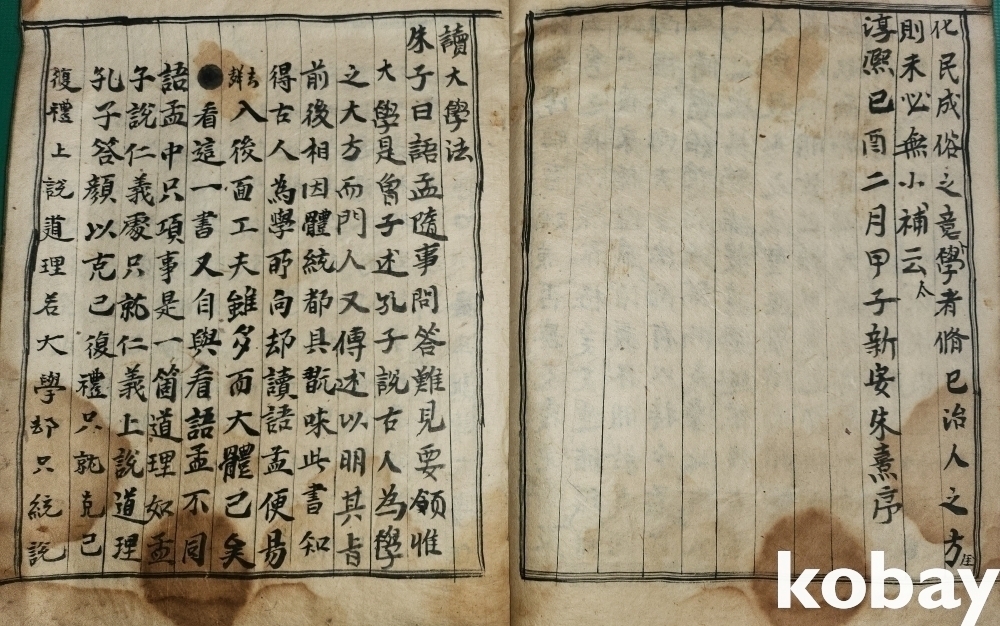 化民成俗之意學者脩己治人之方
則未必無小補云
淳熙己酉二月甲子新安朱熹序
讀大學法
朱子曰語孟隨事問答難見要領惟
大學是曾子述孔子說古人為學
之大方而門人又傳述以明其旨
前後相因體統都具翫味此書知
得古人為學所向却讀語孟便易
入後面工夫雖多而大體已矣
看這一書又自與看語孟不同
語孟中只項事是一箇道理如孟
子說仁義處只就仁義上說道理
孔子答顏以克己復禮只就克己
復禮上說道理若大學却只統說
kobay